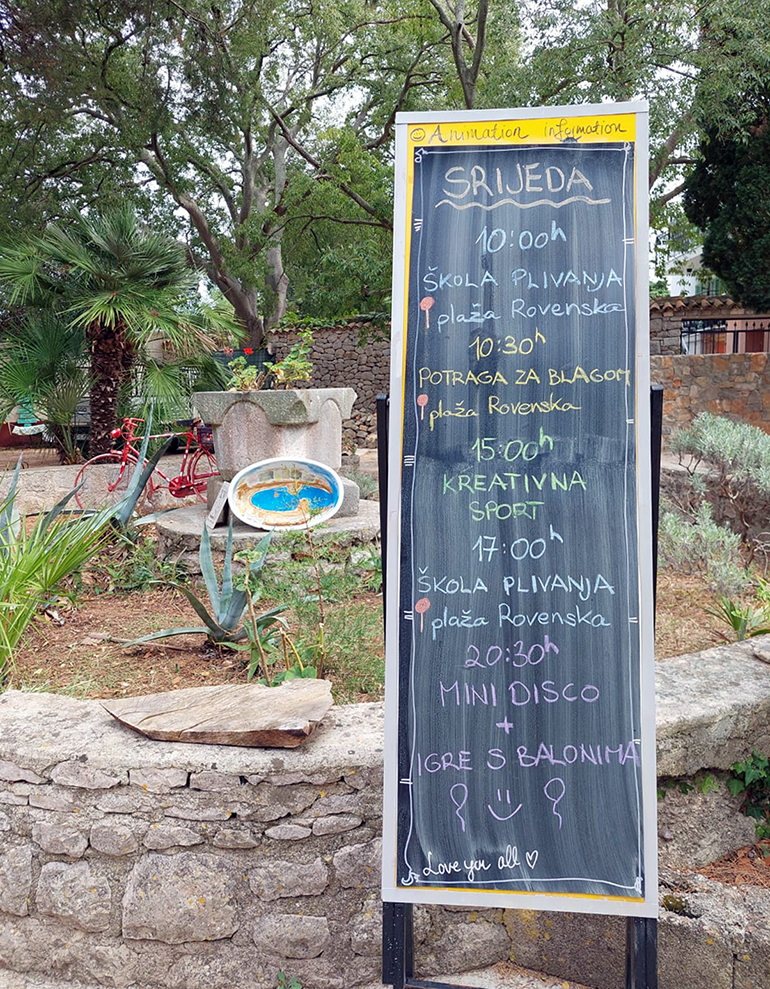 Animation information
SRIJEDA
10:00h
ŠKOLA PLIVANJA
plaža Rovenska
10:30h
POTRAGA ZA BLAGOM
plaža Rovenska
15:00h
KREATIVNA
SPORT
17:00h
ŠKOLA PLIVANJA
plaža Rovenska
20:30h
MINI DISCO
+
IGRE S BALONIMA
Love you all ♡